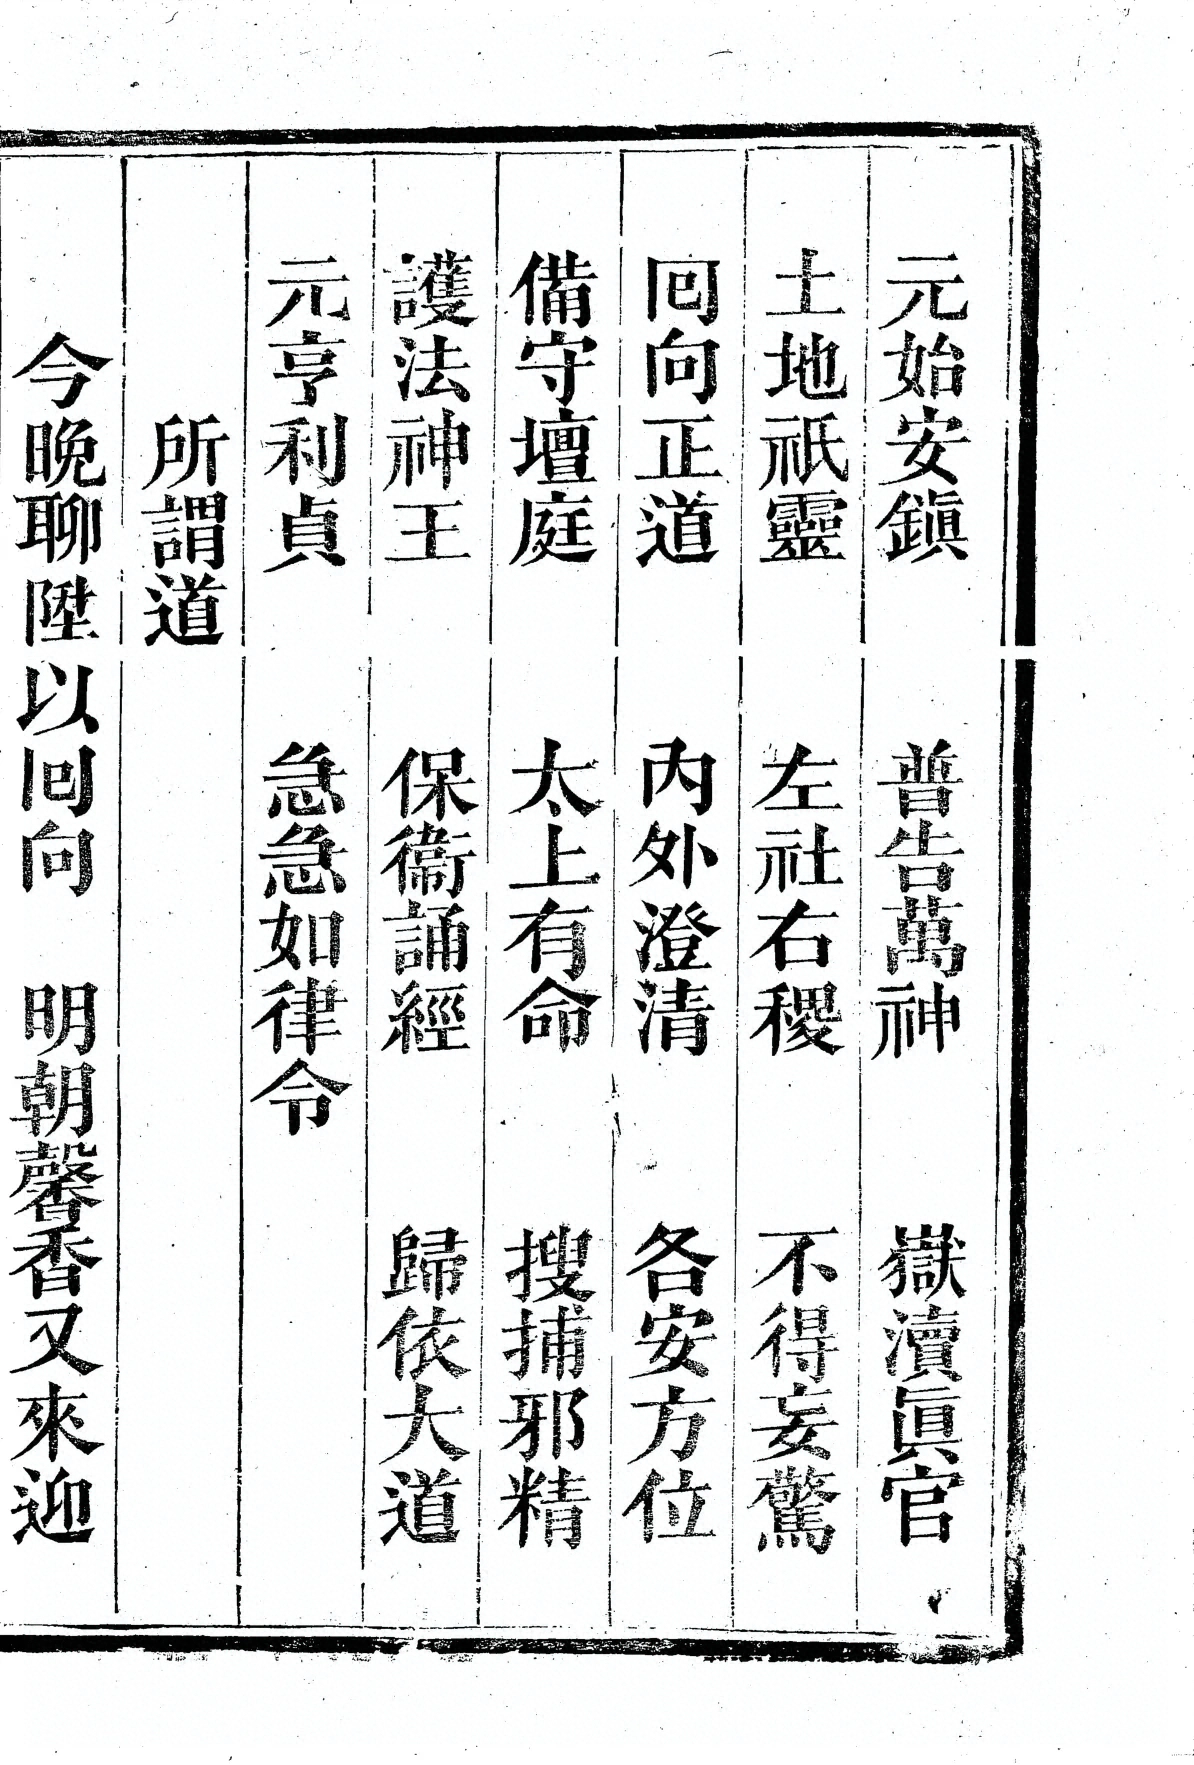 元始安鎭　普告萬神　嶽瀆眞官
土地祇靈　左社右稷　不得妄驚
囘向正道　內外澄清　各安方位
備守壇庭　太上有命　搜捕邪精
護法神王　保衞誦經　歸依大道
元亨利貞　急急如律令
所謂道
今晚聊陞以囘向　明朝馨香又來迎